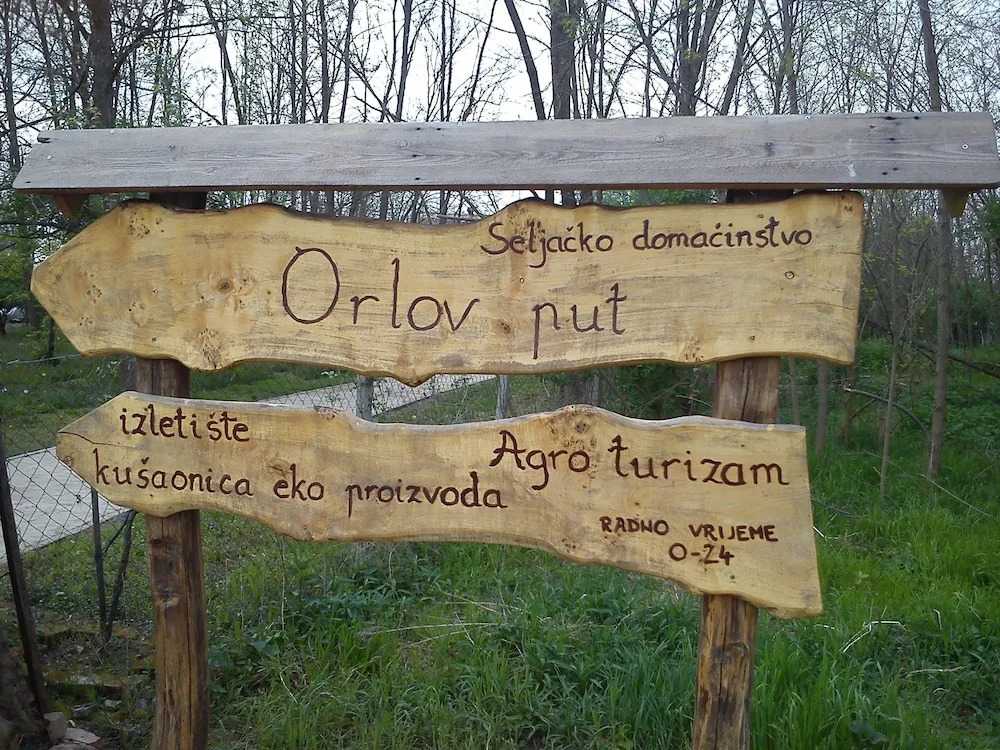 Seljačko domaćinstvo
Orlov put
izletište
Agro turizam
kušaonica eko proizvoda
RADNO VRIJEME
0-24